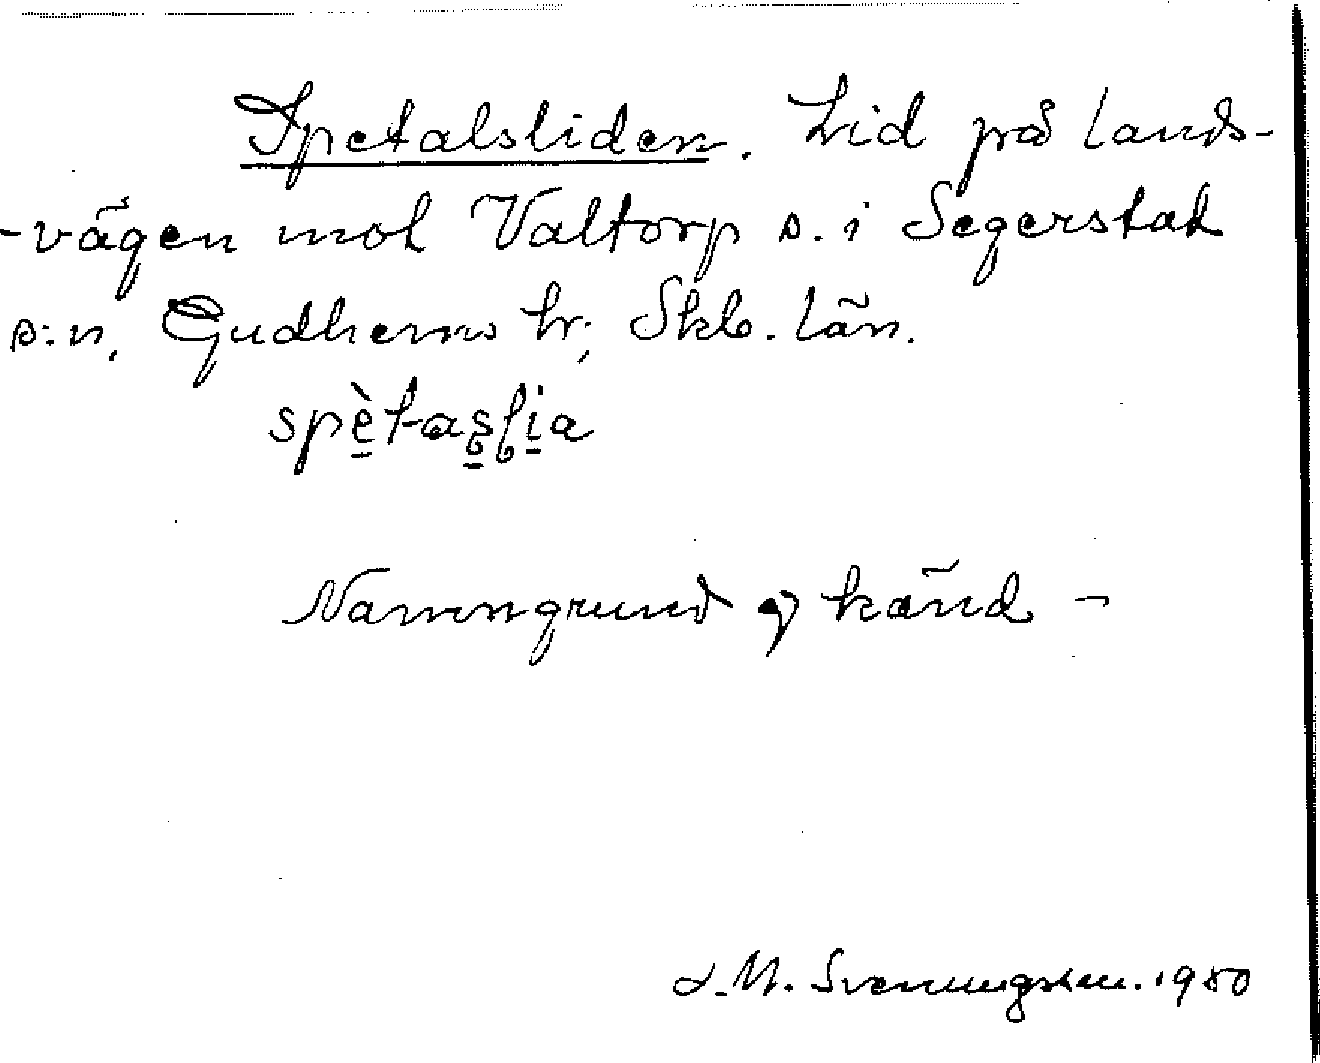 Spetalsliden. Lid på lands-
-vägen mot Valtorp s. i Segerstad
s:n, Gudhems hr, Skb. län.
spètaslia
Namngrund ej känd -
L.M. Svenungsson. 1980